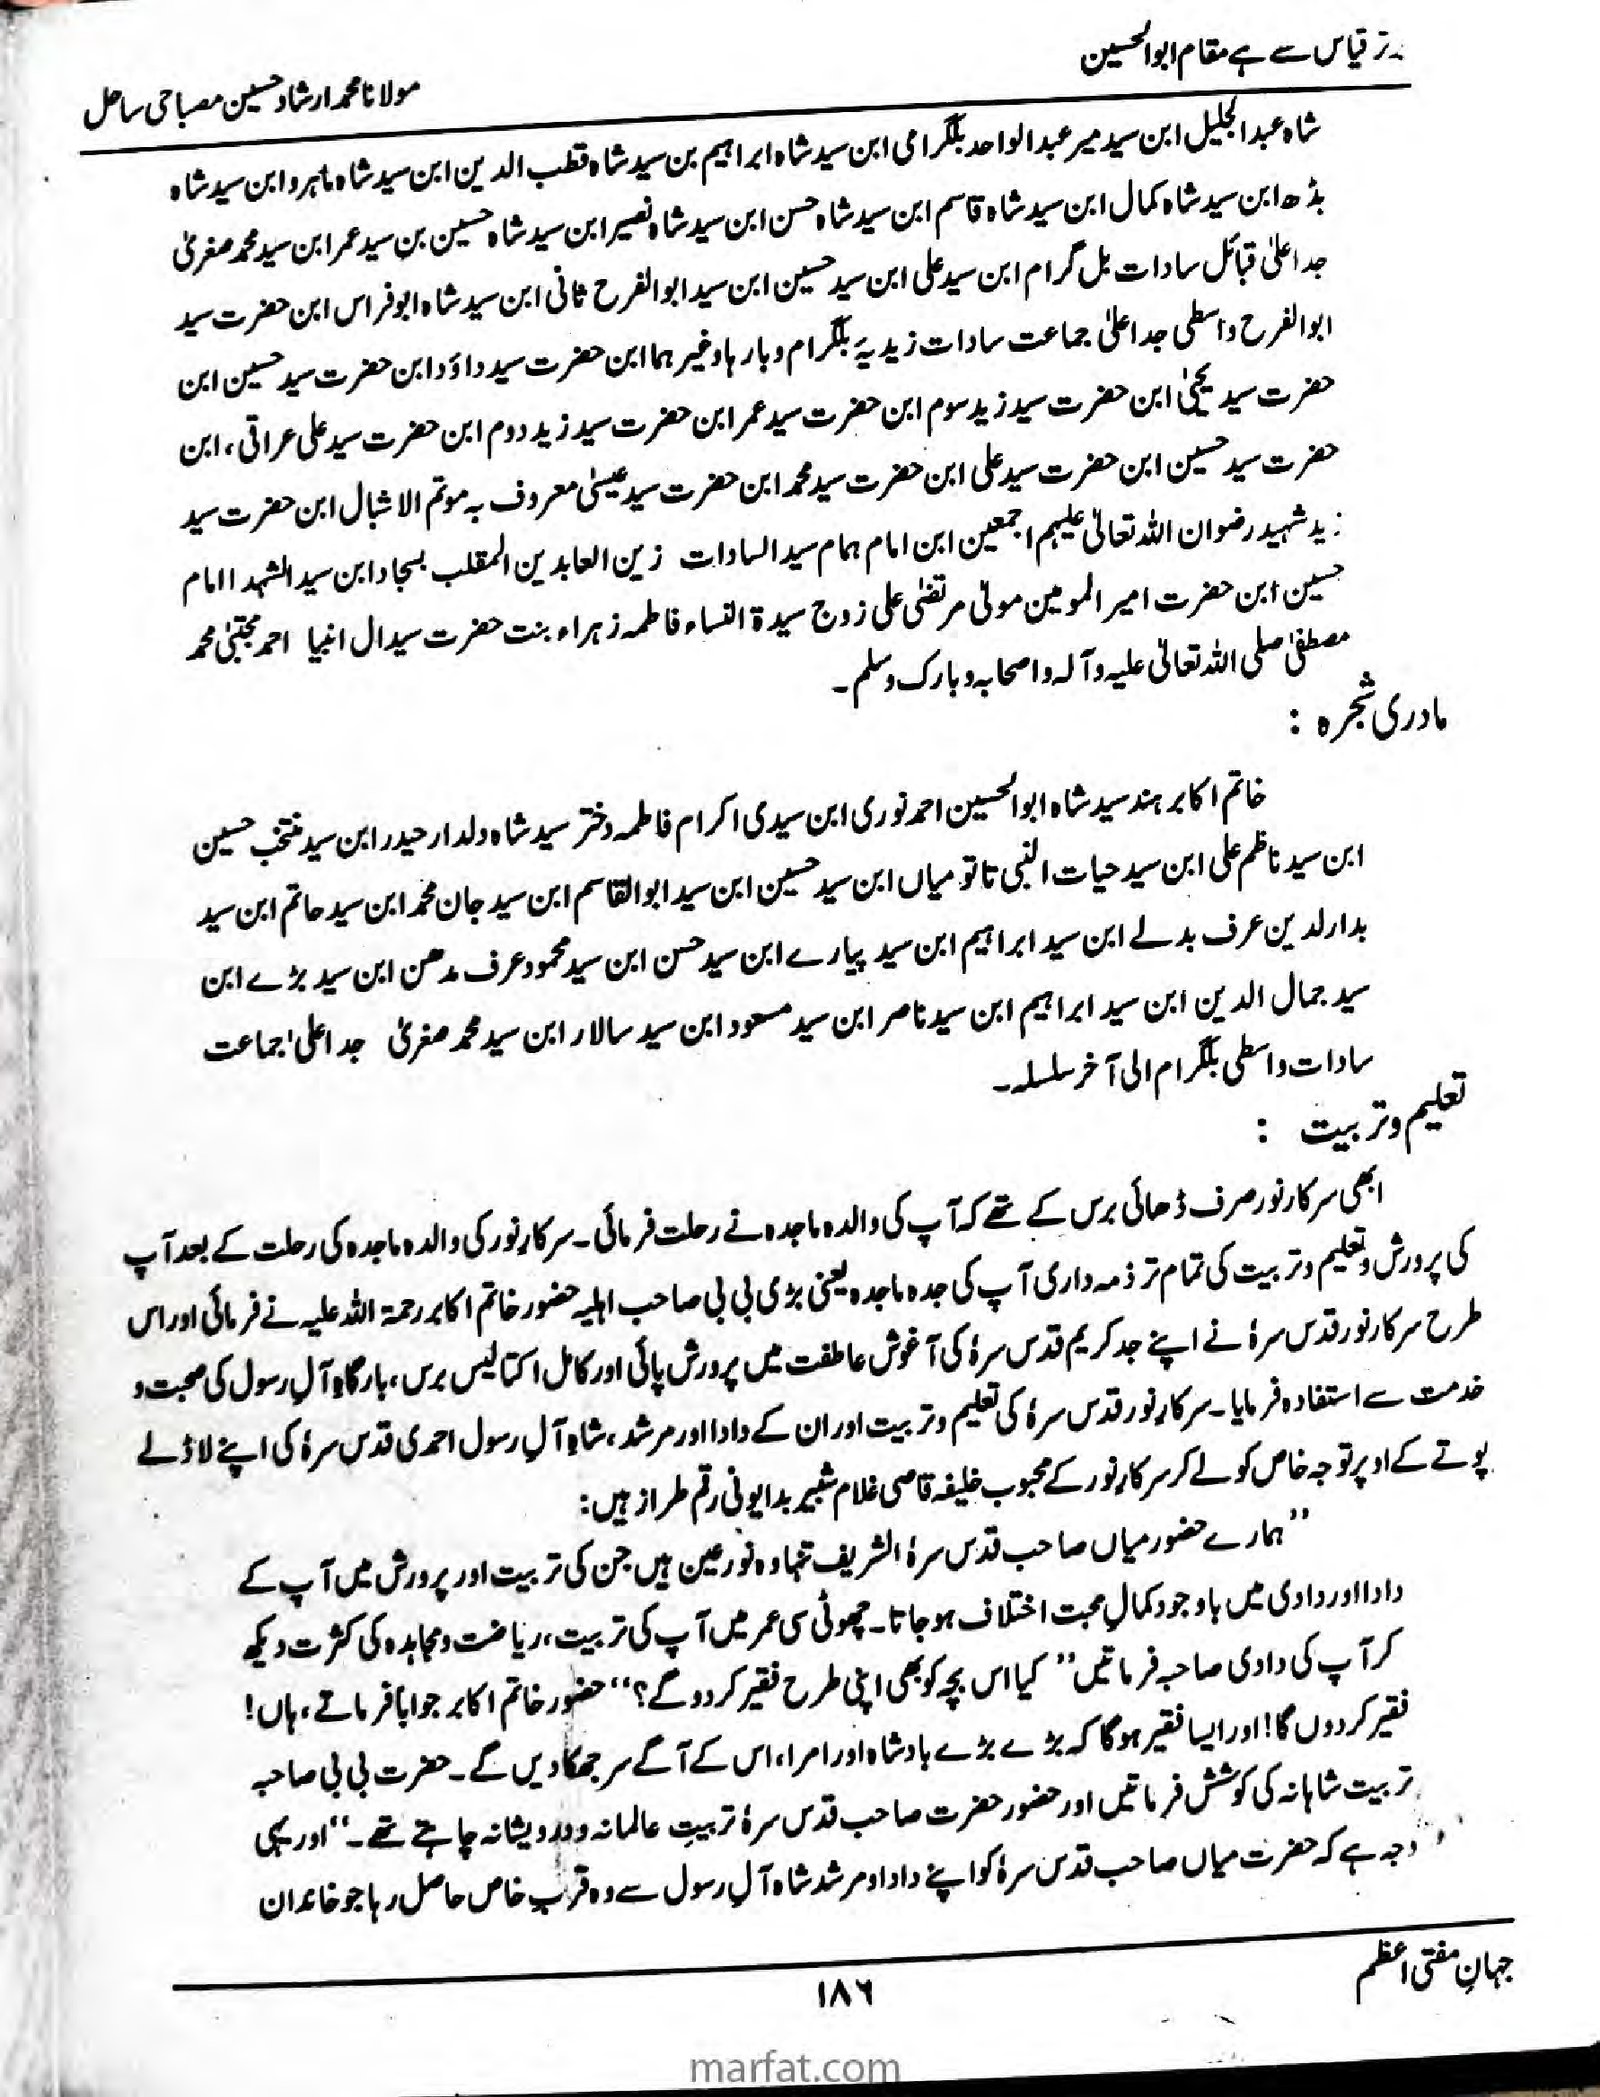 تر قیاس سے ہے مقام ابوالحسین
مولانا محمد ارشاد حسین مصباحی ساحل
شاہ عبدالجلیل ابن سید میر عبدالواحد بلگرامی ابن سید شاہ ابراہیم بن سید شاہ قطب الدین ابن سید شاہ ماہرو ابن سید شاہ
بڈھ ابن سید شاہ کمال ابن سید شاہ قاسم ابن سید شاہ حسن ابن سید شاہ نصیر ابن سید شاہ حسین بن سید عمر ابن سید محمد صغریٰ
جد اعلیٰ قبائل سادات بل گرام ابن سید علی ابن سید حسین ابن سید ابوالفرح ثانی ابن سید شاہ ابو فراس ابن حضرت سید
ابوالفرح واسطی جد اعلیٰ جماعت سادات زیدیۂ بلگرام و بارہا وغیر ہما ابن حضرت سید داؤد ابن حضرت سید حسین ابن
حضرت سید یحییٰ ابن حضرت سید زید سوم ابن حضرت سید عمر ابن حضرت سید زید دوم ابن حضرت سید علی عراقی، ابن
حضرت سید حسین ابن حضرت سید علی ابن حضرت سید محمد ابن حضرت سید عیسیٰ معروف بہ موتم الاشبال ابن حضرت سید
زید شہید رضوان اللہ تعالیٰ علیہم اجمعین ابن امام ہمام سید السادات زین العابدین المقلب بسجاد ابن سید الشہدا امام
حسین ابن حضرت امیر المومین مولیٰ مرتضیٰ علی زوج سیدۃ النساء فاطمہ زہراء بنت حضرت سید ال انبیا احمد مجتبیٰ محمد
مصطفیٰ صلی اللہ تعالیٰ علیہ وآلہ واصحابہ وبارک وسلم۔
مادری شجرہ :
خاتم اکابر ہند سید شاہ ابوالحسین احمد نوری ابن سیدی اکرام فاطمہ دختر سید شاہ دلدار حیدر ابن سید منتخب حسین
ابن سید ناظم علی ابن سید حیات النبی تاتو میاں ابن سید حسین ابن سید ابوالقاسم ابن سید جان محمد ابن سید حاتم ابن سید
بدارلدین عرف بدلے ابن سید ابراہیم ابن سید پیارے ابن سید حسن ابن سید محمود عرف مدھن ابن سید بڑے ابن
سید جمال الدین ابن سید ابراہیم ابن سید ناصر ابن سید مسعود ابن سید سالار ابن سید محمد صغریٰ جد اعلیٰ جماعت
سادات واسطی بلگرام الی آخر سلسلہ۔
تعلیم و تربیت :
ابھی سرکار نور صرف ڈھائی برس کے تھے کہ آپ کی والدہ ماجدہ نے رحلت فرمائی۔ سرکار نور کی والدہ ماجدہ کی رحلت کے بعد آپ
کی پرورش و تعلیم و تربیت کی تمام تر ذمہ داری آپ کی جدہ ماجدہ یعنی بڑی بی بی صاحب اہلیہ حضور خاتم اکابر رحمۃ اللہ علیہ نے فرمائی اور اس
طرح سرکار نور قدس سرہٗ نے اپنے جد کریم قدس سرہٗ کی آغوش عاطفت میں پرورش پائی اور کامل اکتالیس برس، بارگاہِ آلِ رسول کی صحبت و
خدمت سے استفادہ فرمایا۔ سرکار نور قدس سرہٗ کی تعلیم و تربیت اور ان کے دادا اور مرشد، شاہِ آلِ رسول احمدی قدس سرہٗ کی اپنے لاڈلے
پوتے کے اوپر توجہ خاص کو لے کر سرکار نور کے محبوب خلیفہ قاضی غلام شبیر بدایونی رقم طراز ہیں:
’’ہمارے حضور میاں صاحب قدس سرہٗ الشریف تنہا وہ نور عین ہیں جن کی تربیت اور پرورش میں آپ کے
دادا اور دادی میں باوجود کمالِ محبت اختلاف ہو جاتا۔ چھوٹی سی عمر میں آپ کی تربیت، ریاضت و مجاہدہ کی کثرت دیکھ
کر آپ کی دادی صاحبہ فرماتیں ’’کیا اس بچہ کو بھی اپنی طرح فقیر کر دو گے؟‘‘ حضور خاتم اکابر جواباً فرماتے، ہاں!
فقیر کر دوں گا! اور ایسا فقیر ہوگا کہ بڑے بڑے بادشاہ اور امراء، اس کے آگے سر جھکا دیں گے۔ حضرت بی بی صاحبہ
تربیت شاہانہ کی کوشش فرماتیں اور حضور حضرت صاحب قدس سرہٗ تربیتِ عالمانہ و درویشانہ چاہتے تھے۔‘‘ اور یہی
وجہ ہے کہ حضرت میاں صاحب قدس سرہٗ کو اپنے دادا و مرشد شاہ آلِ رسول سے وہ قربِ خاص حاصل رہا جو خاندان
جہانِ مفتی اعظم
۱۸۶
marfat.com